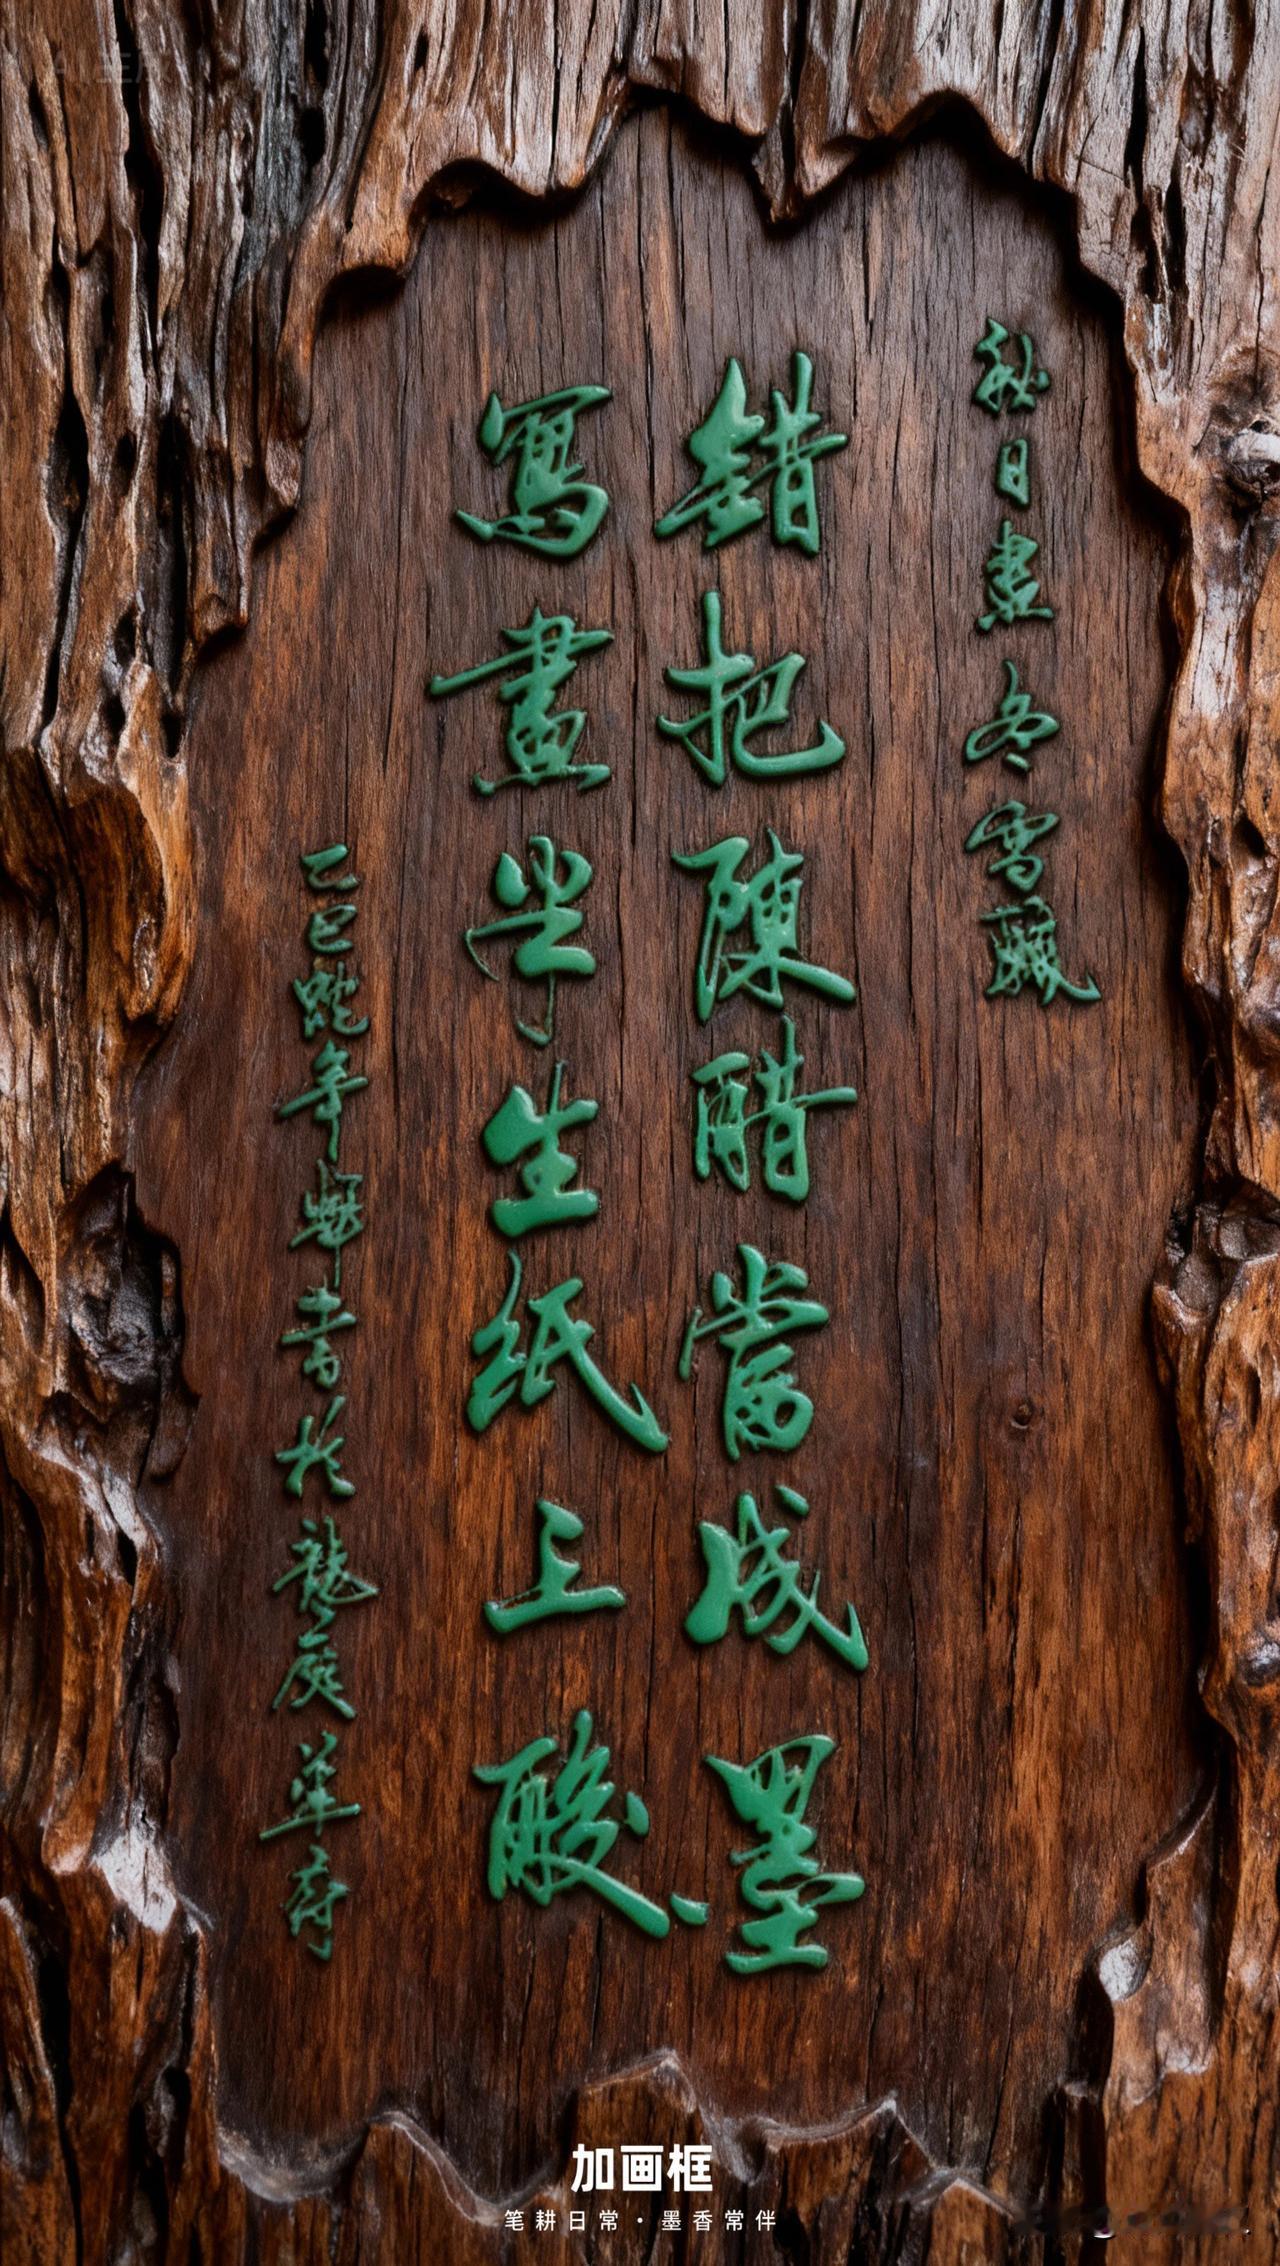 秋日盡冬雪飄
錯把陳醋當成墨
寫盡半生紙上酸
乙巳蛇年輝書於龍庭華府
加画框
笔耕日常·墨香常伴